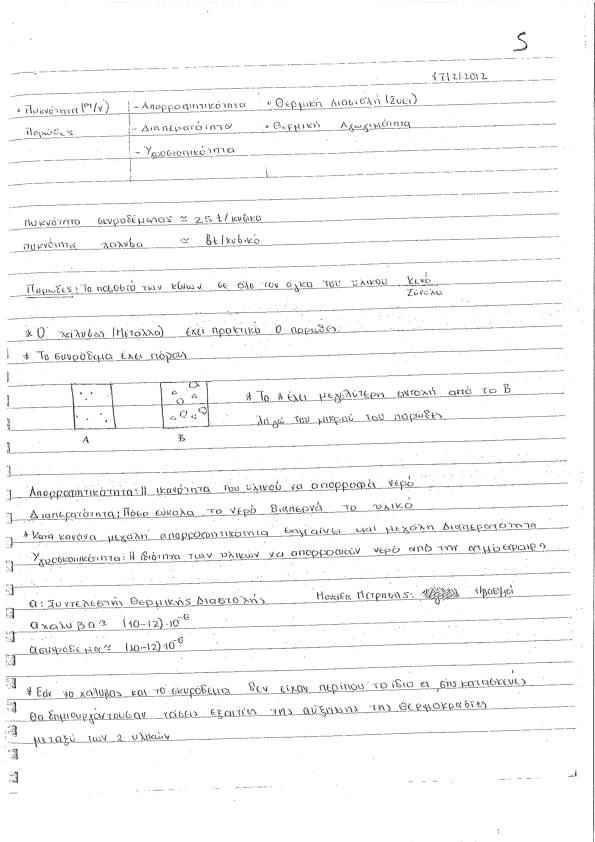 5
17/2/2012
• Πυκνότητα (m/v) - Απορροφητικότητα • Θερμική Διαστολή (Συστ)
Πορώδες - Διαπερατότητα • Θερμική Αγωγιμότητα
- Υγροσκοπικότητα
Πυκνότητα σκυροδέματος ≈ 2.5 t/κυβικό
Πυκνότητα χάλυβα ≈ 8t/κυβικό
Πορώδες: Το ποσοστό των κενών σε όλο τον όγκο του υλικού. Κενό
Σύνολο
* Ο χάλυβας (Μέταλλα) έχει πρακτικά 0 πορώδες.
* Το σκυρόδεμα έχει πόρους
* Το Α έχει μεγαλύτερη αντοχή από το Β
λόγω του μικρού του πορώδες
Α Β
Απορροφητικότητα: Η ικανότητα του υλικού να απορροφά νερό
Διαπερατότητα: Πόσο εύκολα το νερό διαπερνά το υλικό
* Κατά κανόνα μεγάλη απορροφητικότητα σημαίνει και μεγάλη Διαπερατότητα
Υγροσκοπικότητα: Η ιδιότητα των υλικών να απορροφούν νερό από την ατμόσφαιρα
α: Συντελεστής Θερμικής Διαστολής Μονάδα Μέτρησης:
α χάλυβα ≈ (10-12)·10⁻⁶
α σκυρόδεμα ≈ (10-12)·10⁻⁶
* Εάν το χάλυβας και το σκυρόδεμα δεν είχαν περίπου το ίδιο α, στις κατασκευές
θα δημιουργόντουσαν τάσεις εξαιτίας της αύξησης της θερμοκρασίας
μεταξύ των 2 υλικών